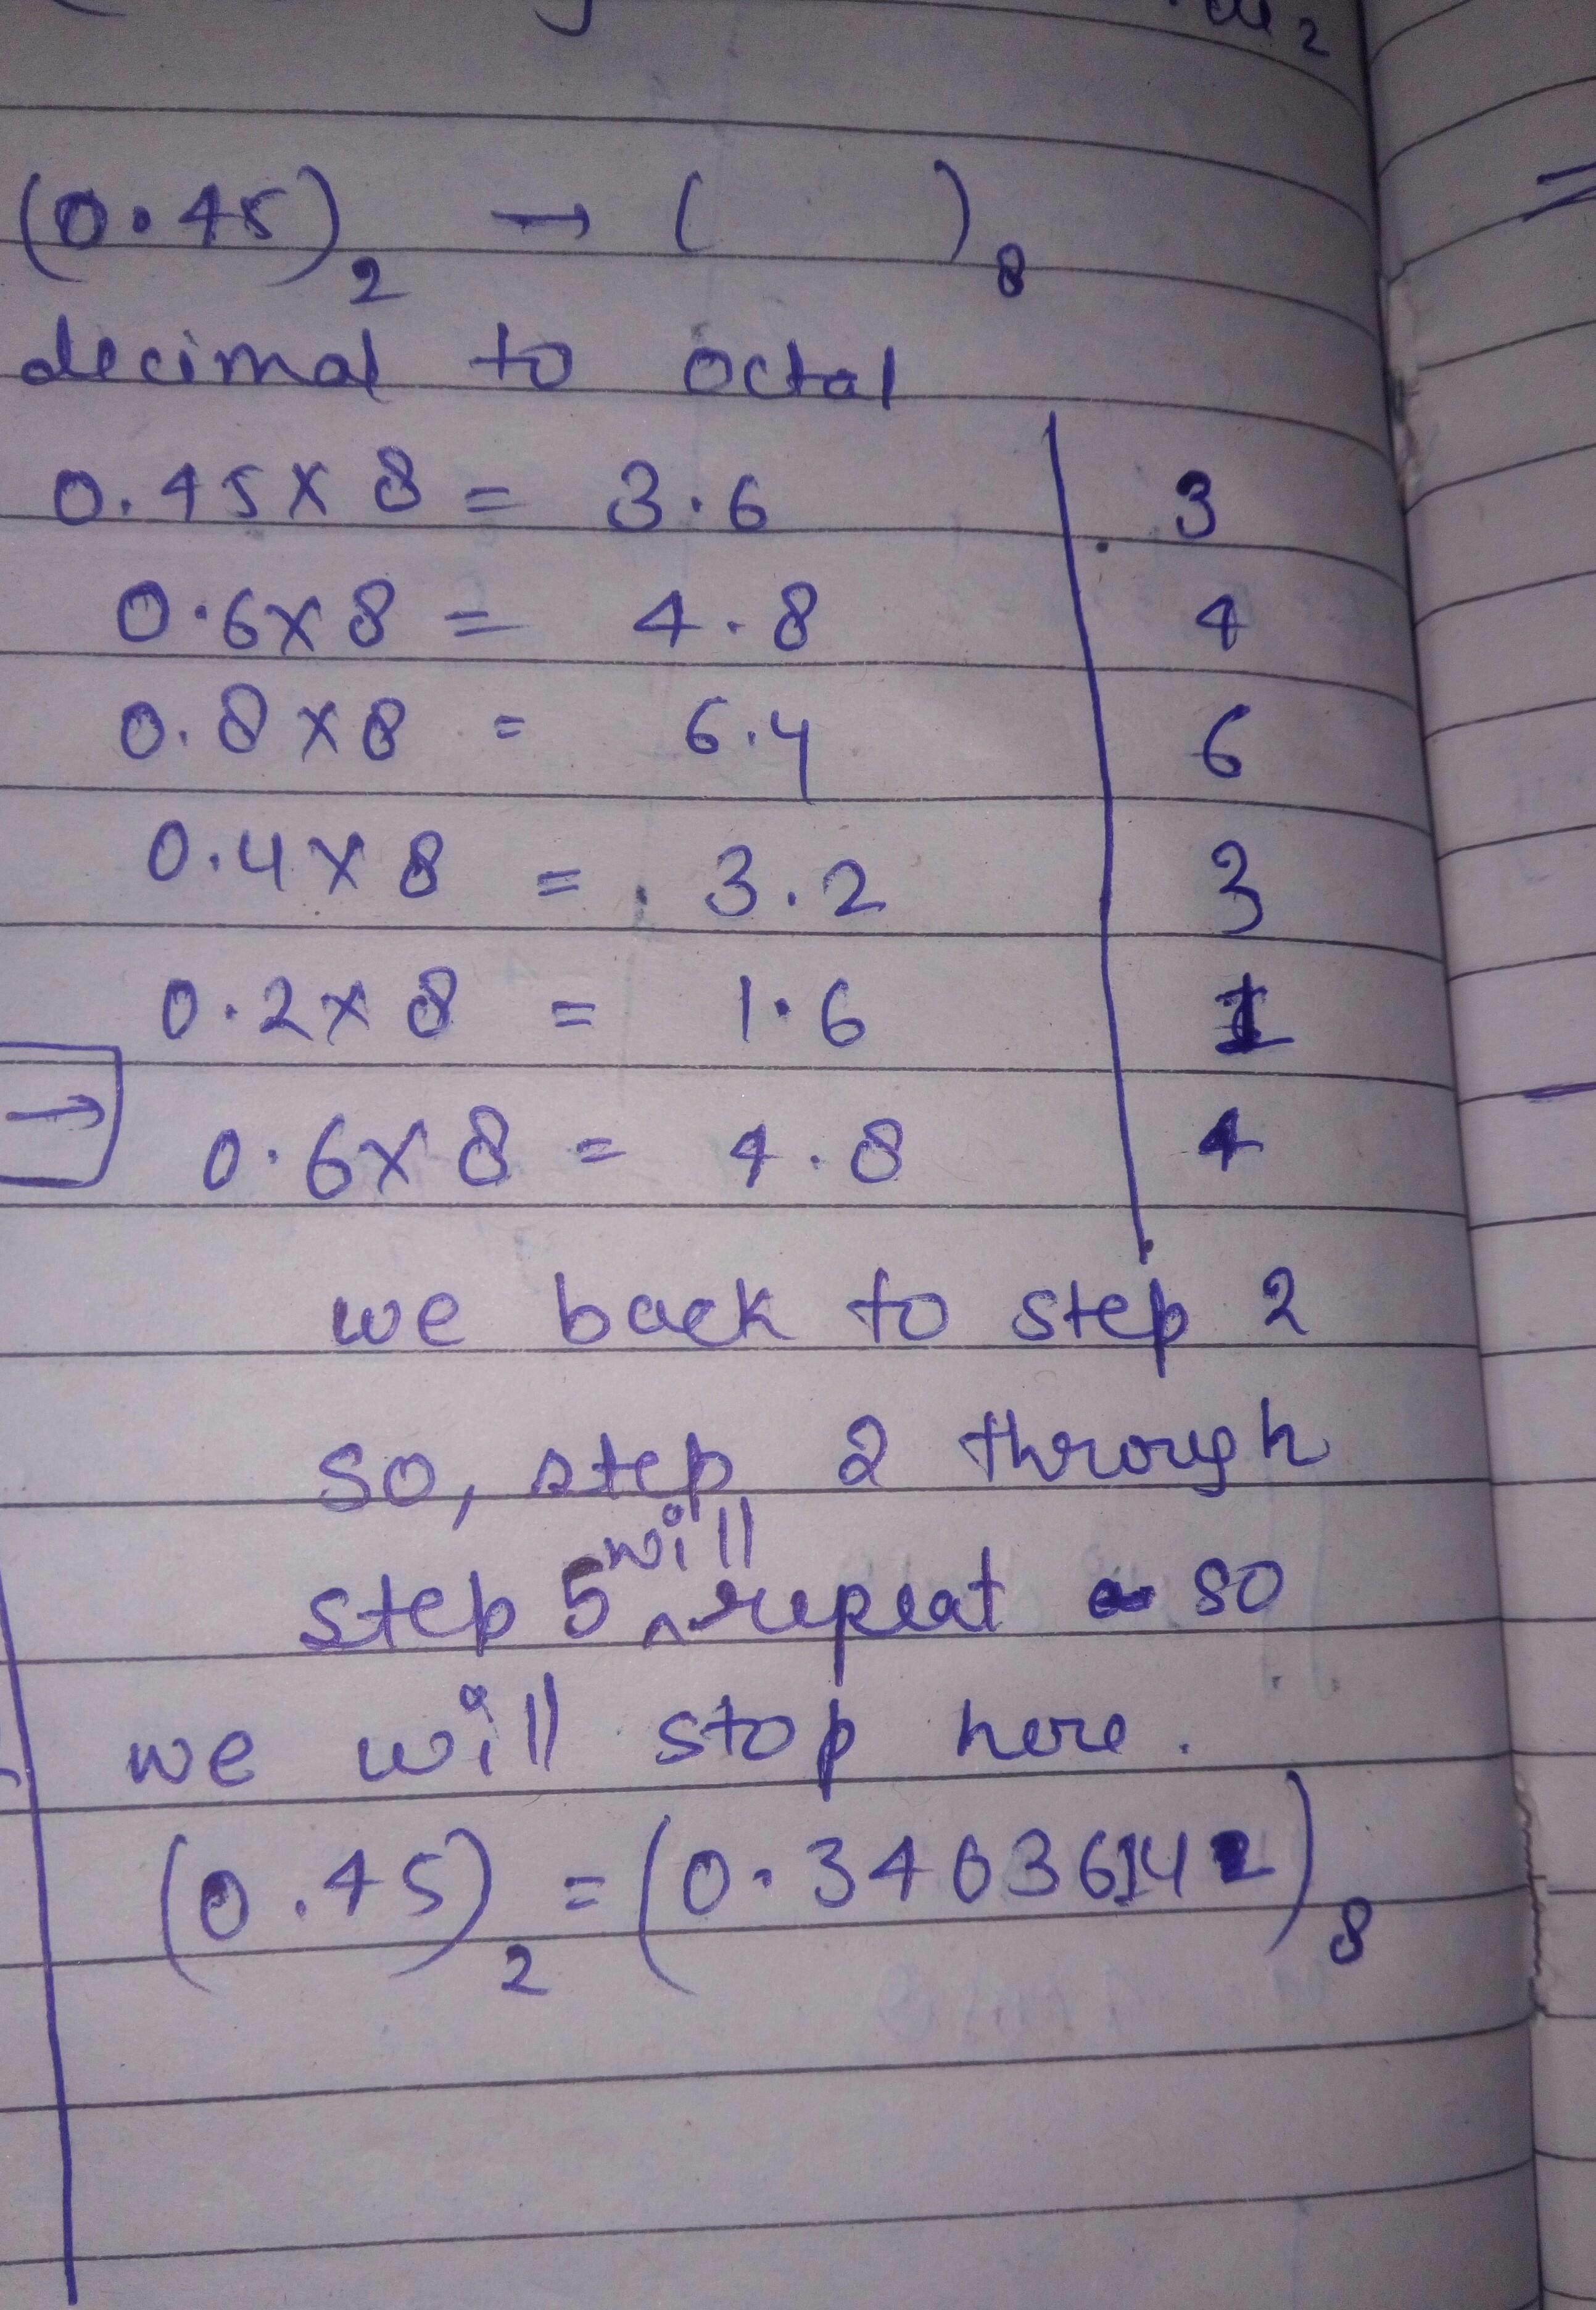 2
(0.45)2 → ( )8
decimal to octal
0.45 x 8 = 3.6 3
0.6 x 8 = 4.8 4
0.8 x 8 = 6.4 6
0.4 x 8 = 3.2 3
0.2 x 8 = 1.6 1
→ 0.6 x 8 = 4.8 4
we back to step 2
so, step 2 through
step 5 will repeat so
we will stop here.
(0.45)2 = (0.34636142)8